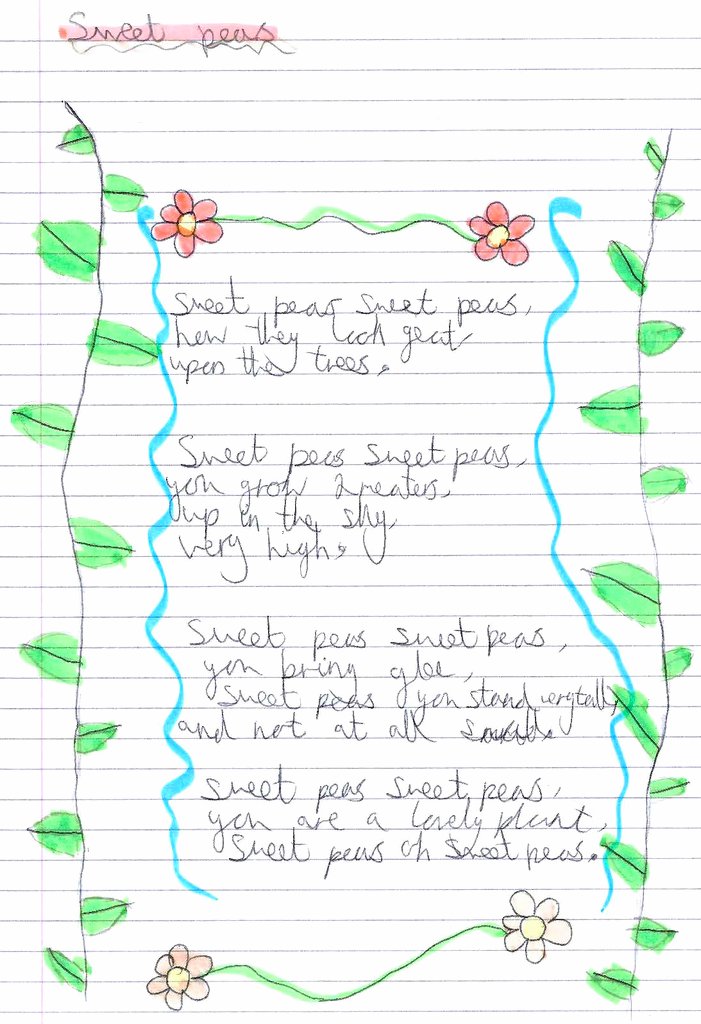 Sweet peas
Sweet peas sweet peas,
how they look geat
upon the trees.
Sweet peas sweet peas,
you grow 2 meaters,
up in the sky,
very high.
Sweet peas sweet peas,
you bring glee,
Sweet peas you stand very tally
and not at all small.
Sweet peas sweet peas,
you are a lovely plant,
Sweet peas oh sweet peas.